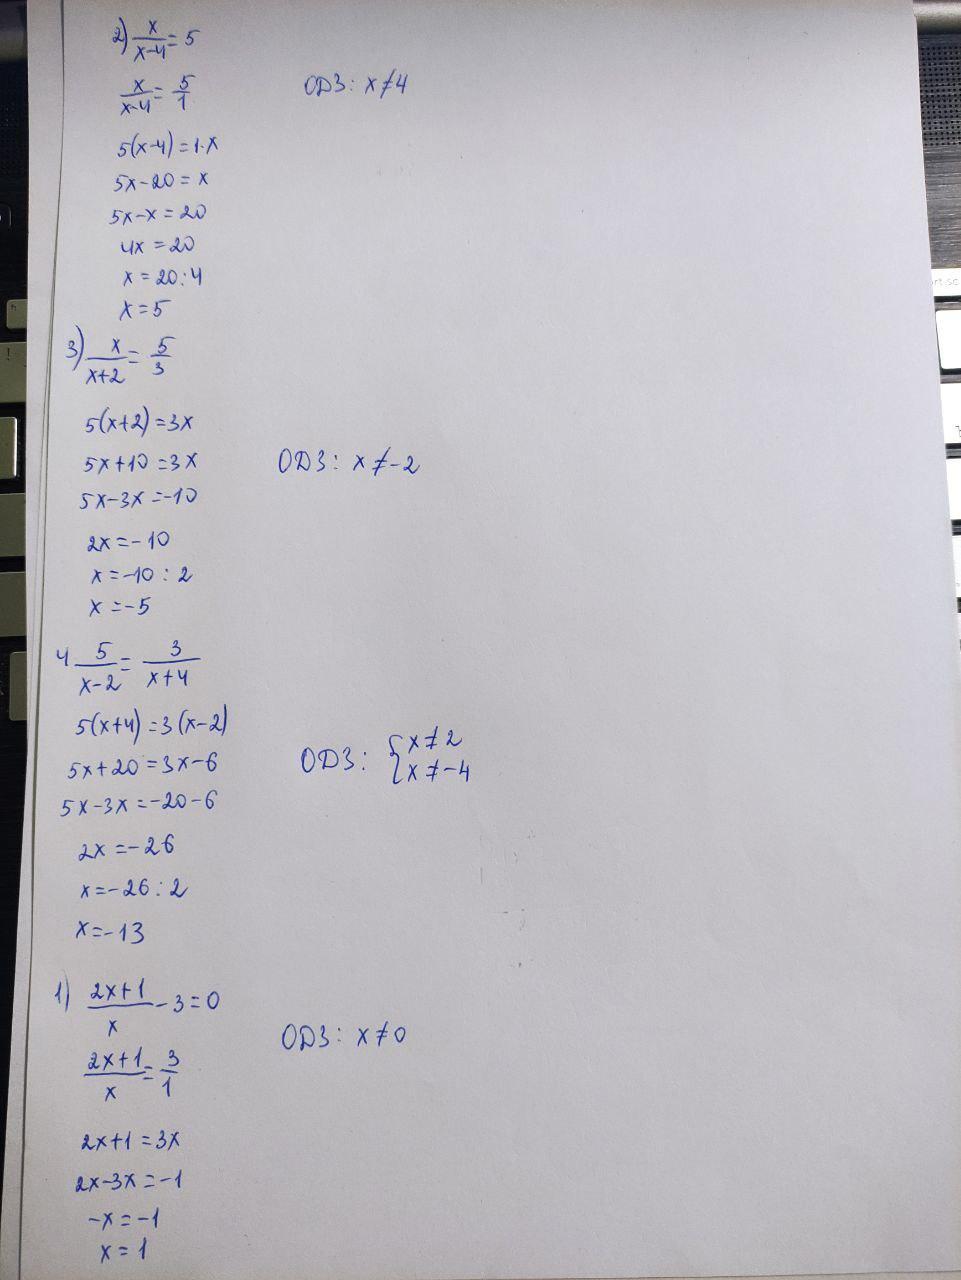 2) x/(x-4) = 5
x/(x-4) = 5/1
ОДЗ: x ≠ 4
5(x-4) = 1·x
5x-20 = x
5x-x = 20
4x = 20
x = 20:4
x = 5
3) x/(x+2) = 5/3
5(x+2) = 3x
5x+10 = 3x
ОДЗ: x ≠ -2
5x-3x = -10
2x = -10
x = -10:2
x = -5
4 5/(x-2) = 3/(x+4)
5(x+4) = 3(x-2)
5x+20 = 3x-6
ОДЗ: { x ≠ 2
x ≠ -4
5x-3x = -20-6
2x = -26
x = -26:2
x = -13
1) (2x+1)/x - 3 = 0
ОДЗ: x ≠ 0
(2x+1)/x = 3/1
2x+1 = 3x
2x-3x = -1
-x = -1
x = 1